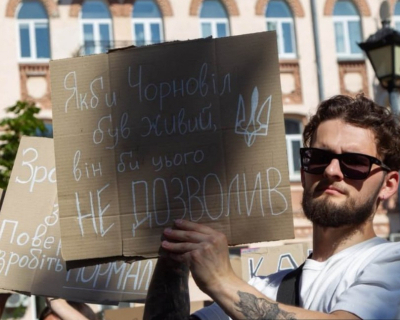 Якби Чорновіл
був живий,
він би цього
НЕ ДОЗВОЛИВ
Зро
Пове
зробіть
НОРМАЛ
КА